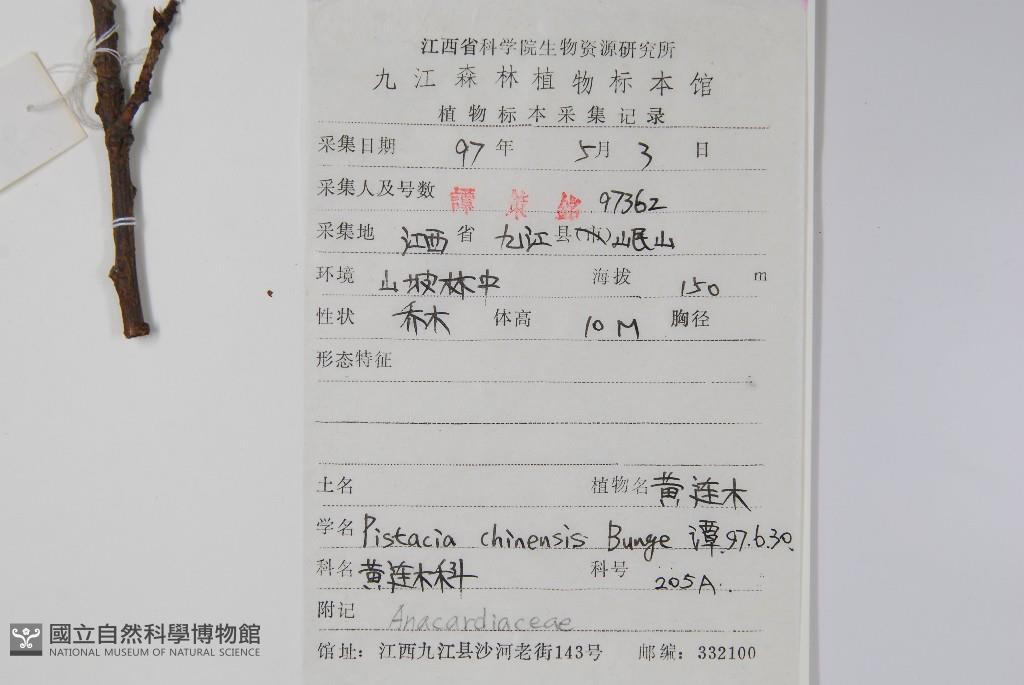 江西省科学院生物资源研究所
九江森林植物标本馆
植物标本采集记录
采集日期 97 年 5月 3 日
采集人及号数 譚策銘 97362
采集地 江西 省 九江 县(市) 岷山
环境 山坡林中 海拔 150 m
性状 乔木 体高 10 M 胸径
形态特征
土名 植物名 黄连木
学名 Pistacia chinensis Bunge 谭.97.6.30.
科名 黄连木科 科号 205A.
附记 Anacardiaceae
馆址：江西九江县沙河老街143号 邮编：332100
國立自然科學博物館
NATIONAL MUSEUM OF NATURAL SCIENCE